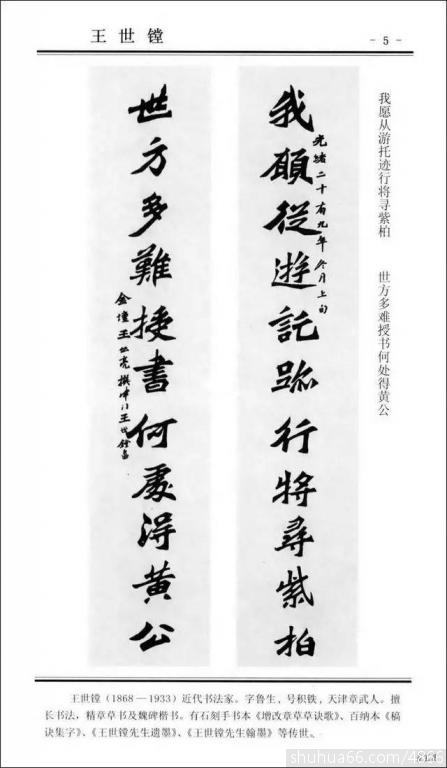 王世镗
- 5 -
我愿从游托迹行将寻紫柏 世方多难授书何处得黄公
光绪二十有九年冬月上旬
我願從遊託跡行将尋紫柏
世方多難授書何處得黄公
王世镗（1868—1933）近代书法家。字鲁生，号积铁，天津章武人。擅
长书法，精章草书及魏碑楷书。有石刻手书本《增改章草草诀歌》、百纳本《稿
诀集字》、《王世镗先生遗墨》、《王世镗先生翰墨》等传世。
shuhua66.com